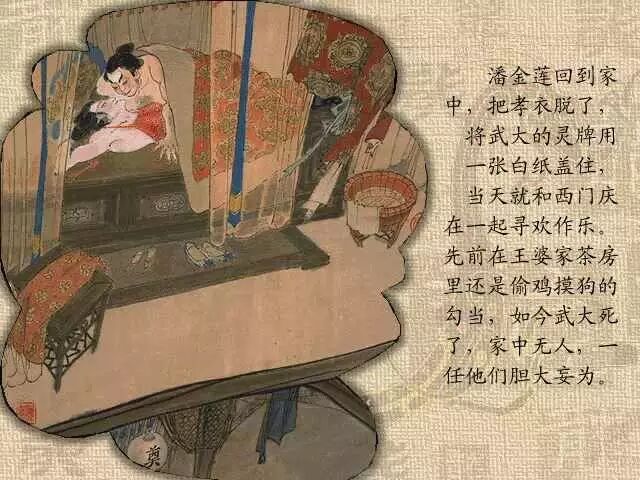 潘金莲回到家
中，把孝衣脱了，
将武大的灵牌用
一张白纸盖住，
当天就和西门庆
在一起寻欢作乐。
先前在王婆家茶房
里还是偷鸡摸狗的
勾当，如今武大死
了，家中无人，一
任他们胆大妄为。
奠